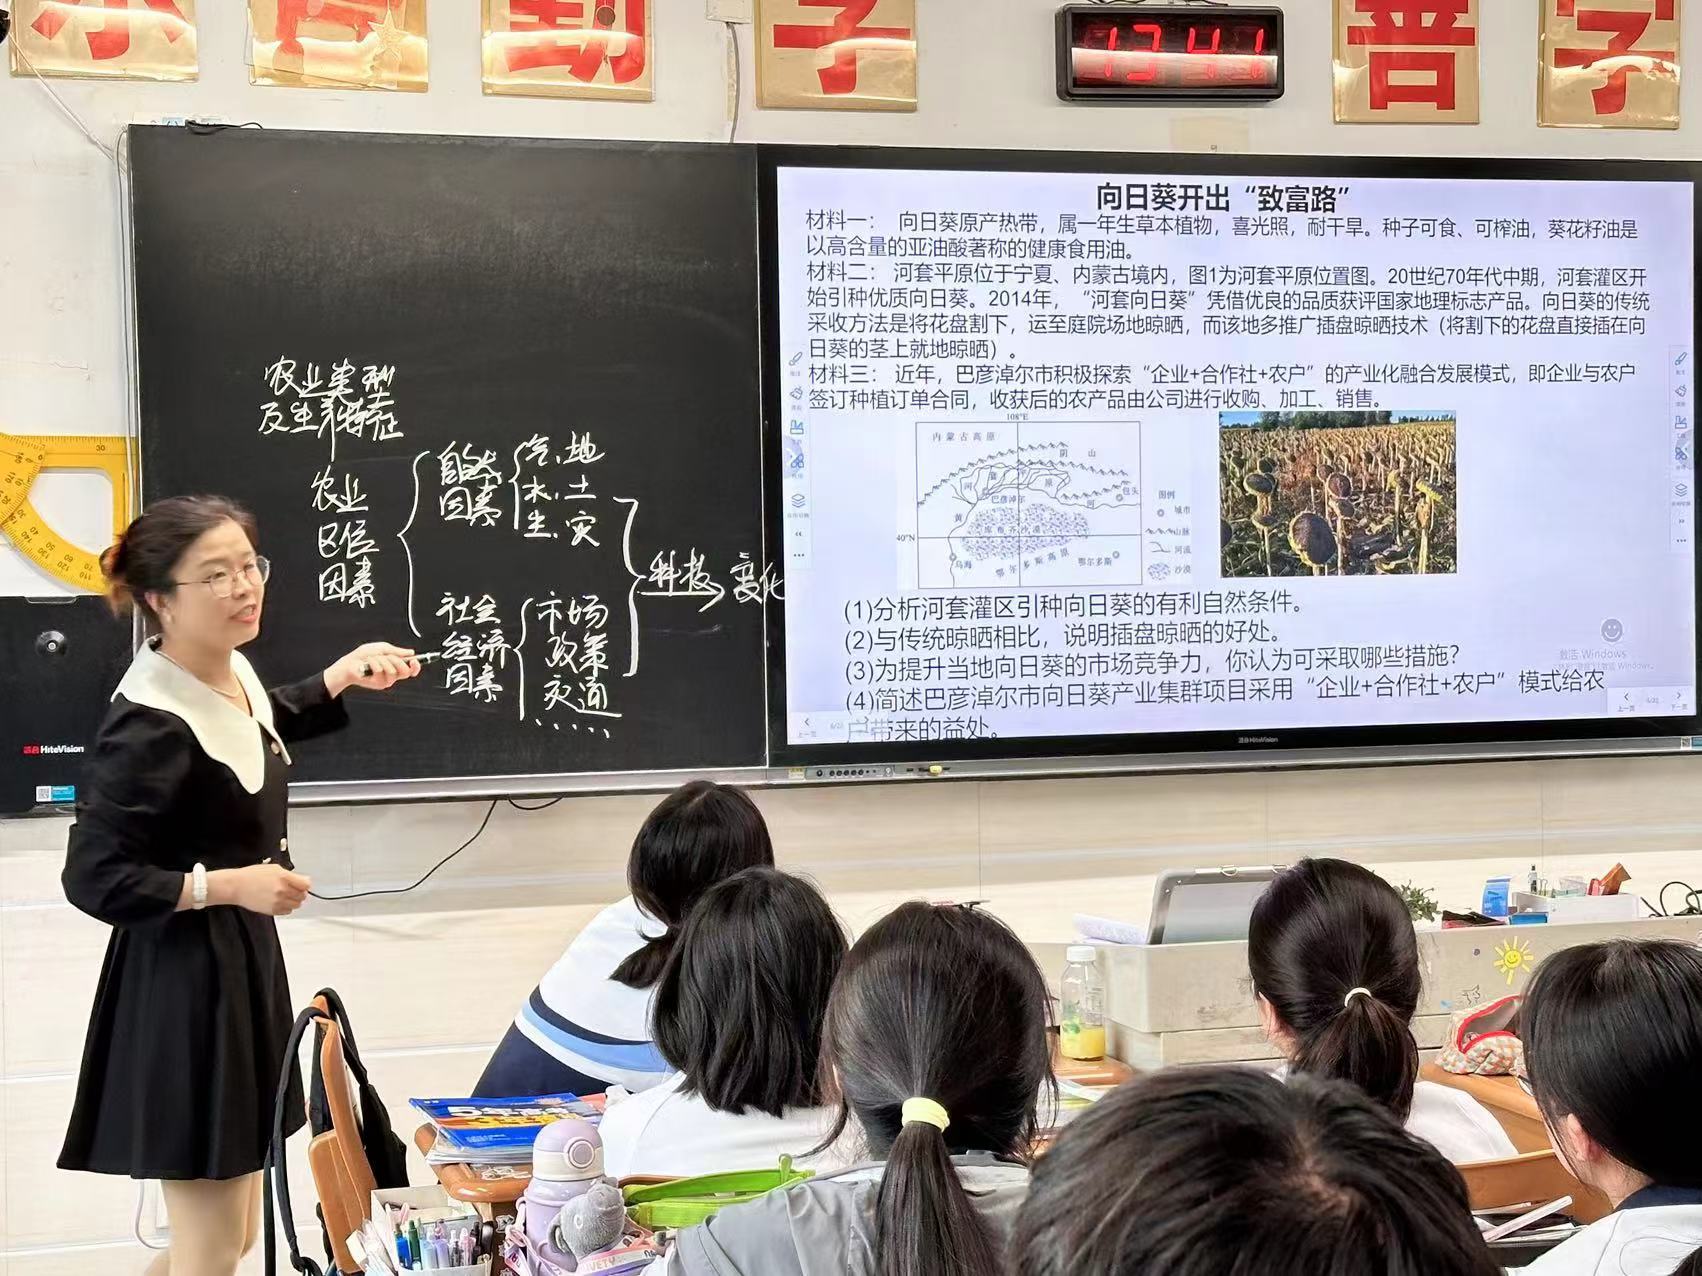 勤
学
普
学
13:41
农业类型
及生产特征
农业
区位
因素
自然
因素
气、地
水、土
生、灾
社会
经济
因素
市场
政策
交通
....
科技
变化
向日葵开出“致富路”
材料一： 向日葵原产热带，属一年生草本植物，喜光照，耐干旱。种子可食、可榨油，葵花籽油是
以高含量的亚油酸著称的健康食用油。
材料二： 河套平原位于宁夏、内蒙古境内，图1为河套平原位置图。20世纪70年代中期，河套灌区开
始引种优质向日葵。2014年，“河套向日葵”凭借优良的品质获评国家地理标志产品。向日葵的传统
采收方法是将花盘割下，运至庭院场地晾晒，而该地多推广插盘晾晒技术（将割下的花盘直接插在向
日葵的茎上就地晾晒）。
材料三： 近年，巴彦淖尔市积极探索“企业+合作社+农户”的产业化融合发展模式，即企业与农户
签订种植订单合同，收获后的农产品由公司进行收购、加工、销售。
108°E
内蒙古高原
阴山
河套平原
巴彦淖尔
包头
黄河
库布齐沙漠
40°N
乌海
鄂尔多斯高原
鄂尔多斯
图例
城市
山脉
河流
沙漠
(1)分析河套灌区引种向日葵的有利自然条件。
(2)与传统晾晒相比，说明插盘晾晒的好处。
(3)为提升当地向日葵的市场竞争力，你认为可采取哪些措施？
(4)简述巴彦淖尔市向日葵产业集群项目采用“企业+合作社+农户”模式给农
户带来的益处。
激活 Windows
上一页
下一页
HiteVision
HiteVision